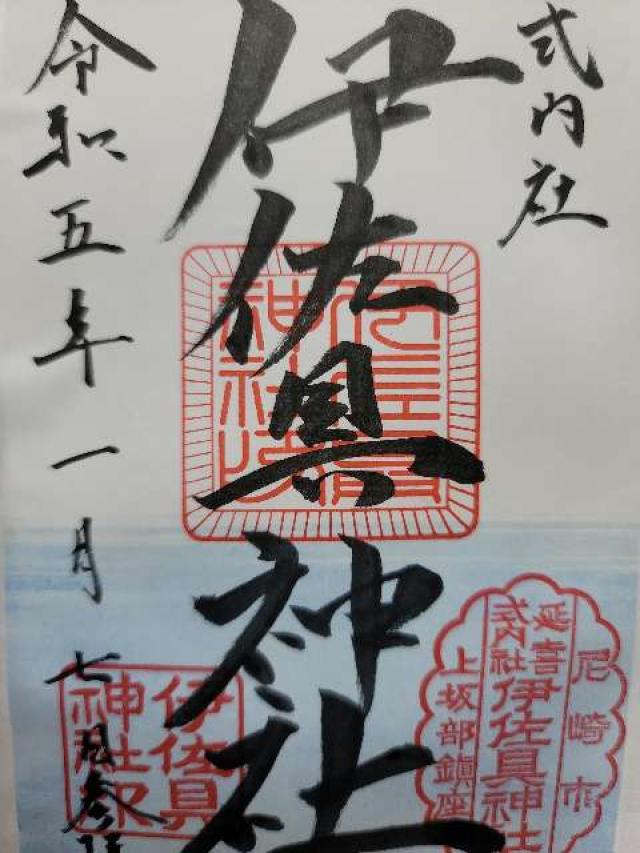 式内社
伊佐具神社
令和五年一月七日参拝
伊佐具
神社印
尼崎市
延喜
式内社
伊佐具神社
上坂部鎮座